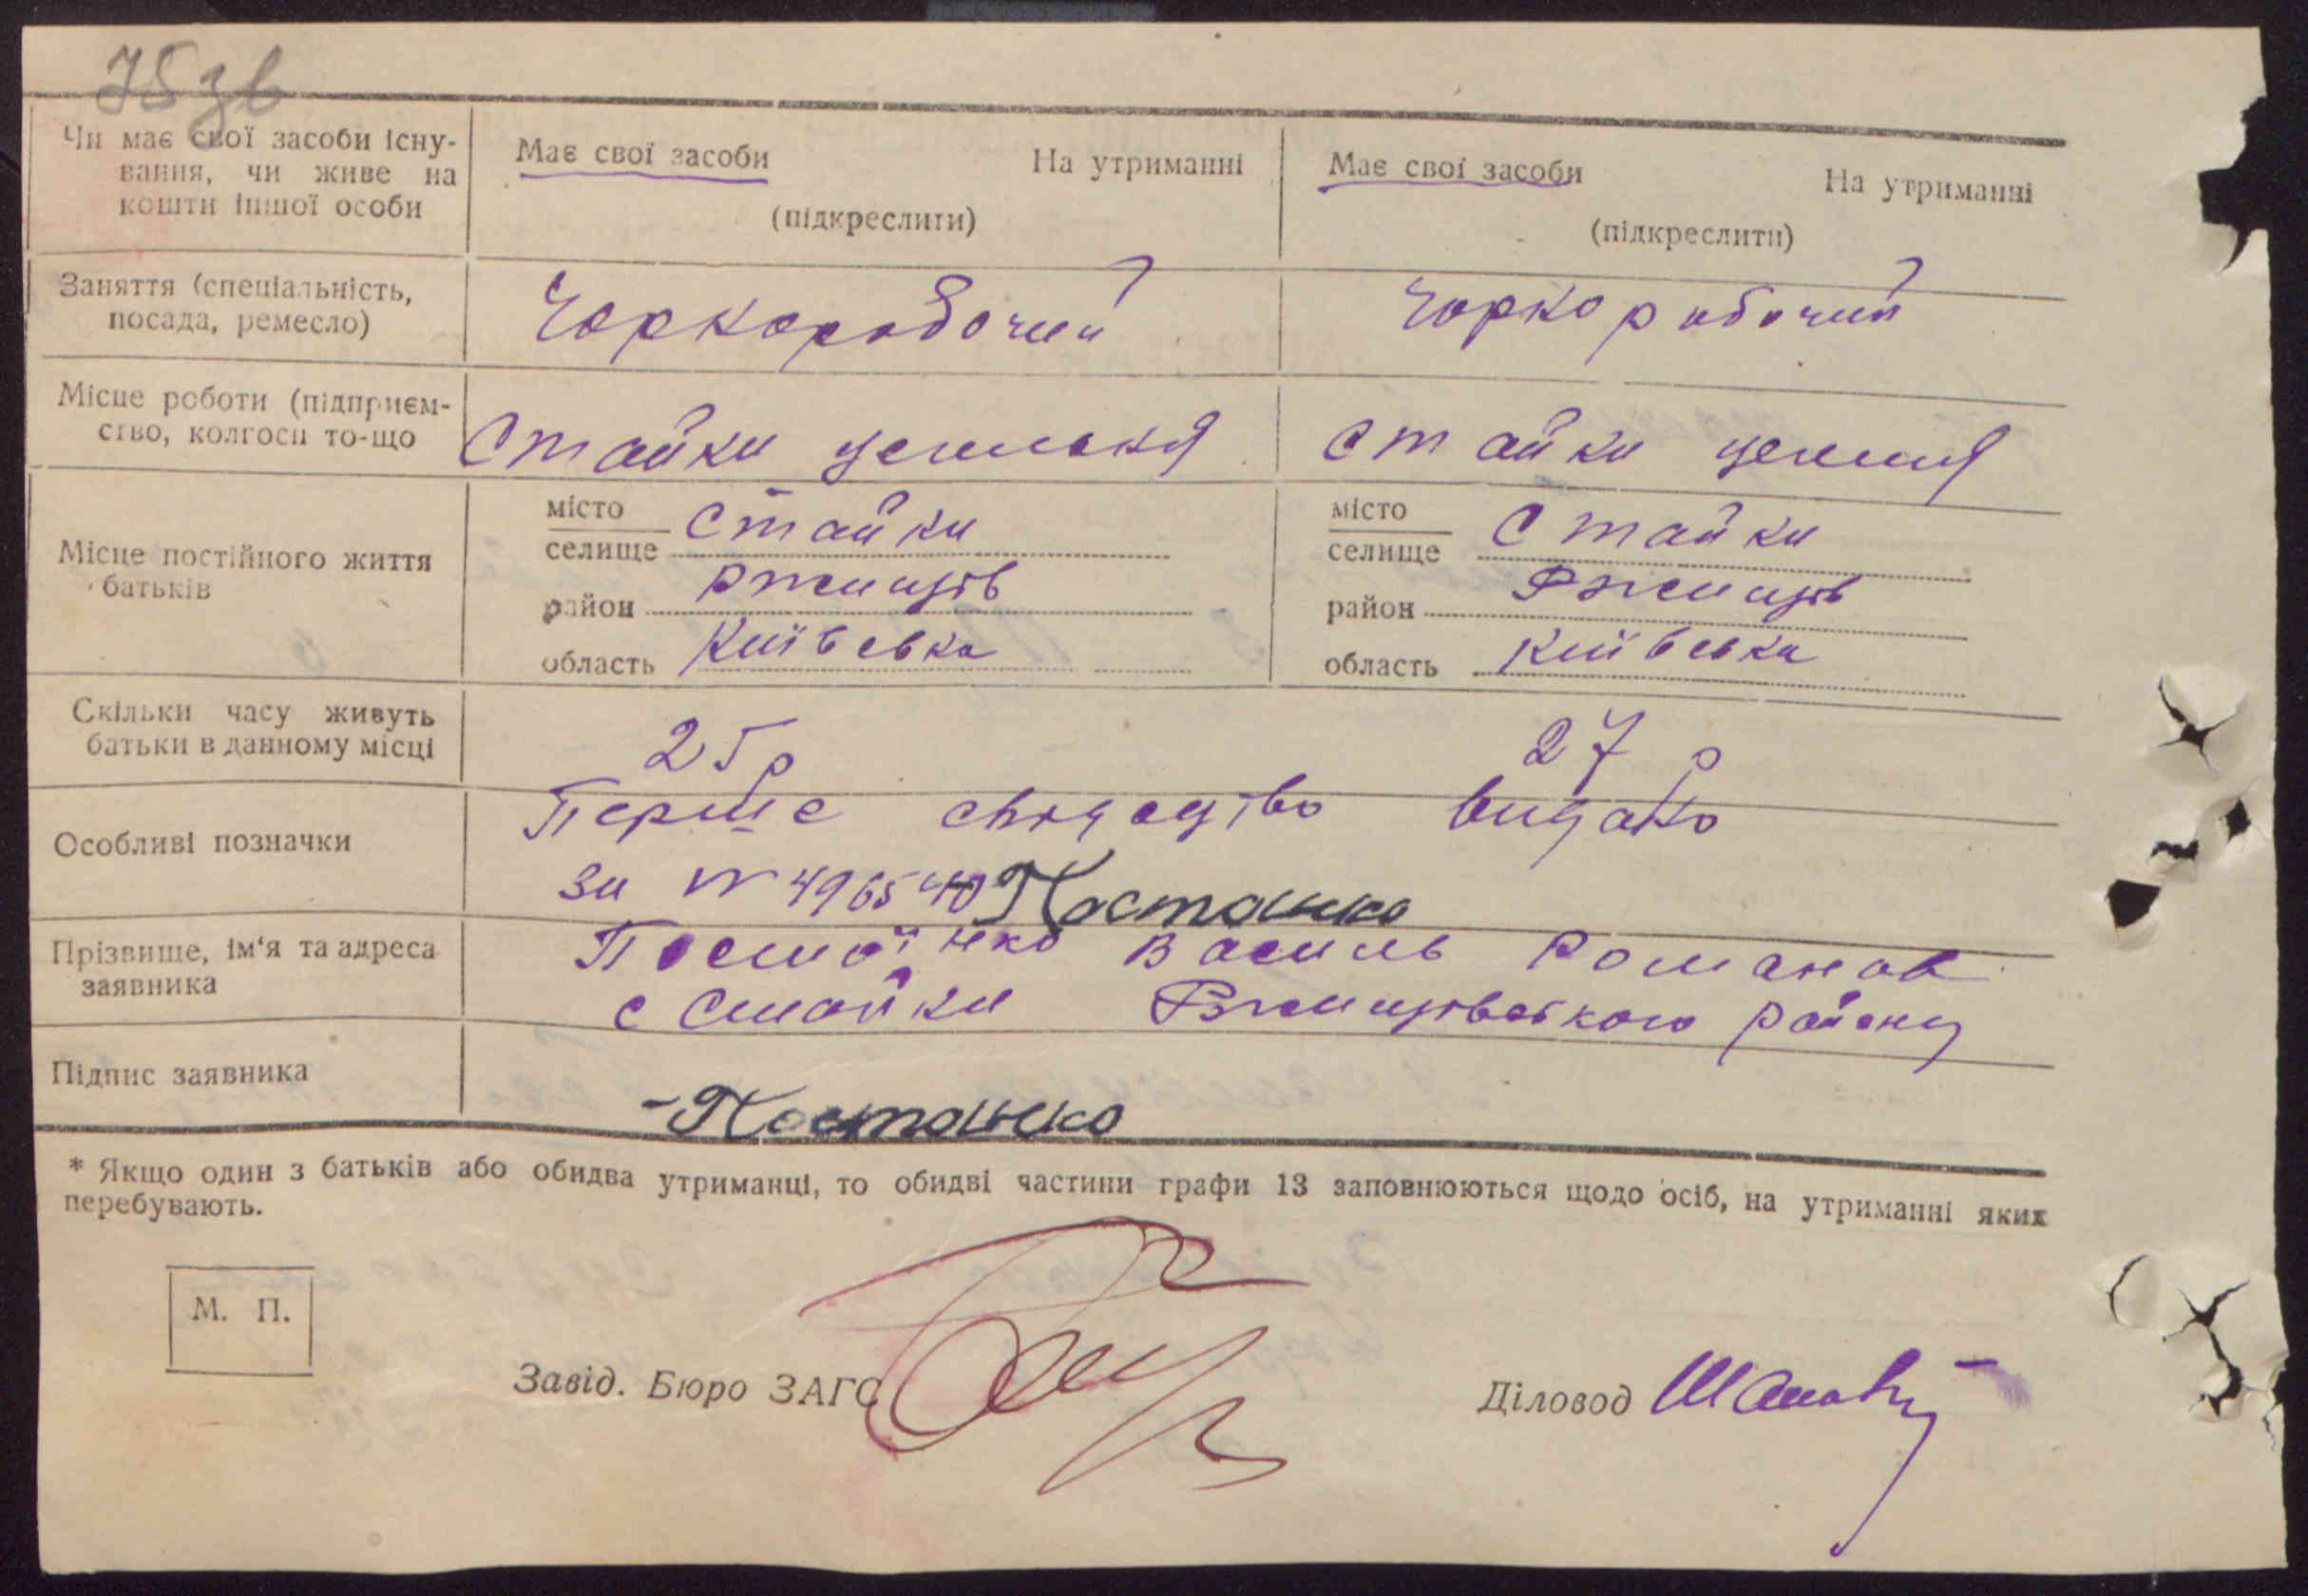 75 зв
Чи має свої засоби існу-
вання, чи живе на
кошти іншої особи
Має свої засоби На утриманні
(підкреслити)
Має свої засоби На утриманні
(підкреслити)
Заняття (спеціальність,
посада, ремесло)
Чоркоробочий
Чоркорабочий
Місце роботи (підприєм-
ство, колгосп то-що
Стайки
Стайки
Місце постійного життя
батьків
місто
селище Стайки
район Ржищів
область Київська
місто
селище Стайки
район Ржищів
область Київська
Скільки часу живуть
батьки в данному місці
25 р
27 р
Особливі позначки
Перше свідоцтво видано
за № 496540 Постоынко
Прізвище, ім'я та адреса
заявника
Постоїнко Василь Романов
с Стайки Ржищівського району
Підпис заявника
Постоынко
* Якщо один з батьків або обидва утриманці, то обидві частини графи 13 заповнюються щодо осіб, на утриманні яких
перебувають.
М. П.
Завід. Бюро ЗАГС
Діловод